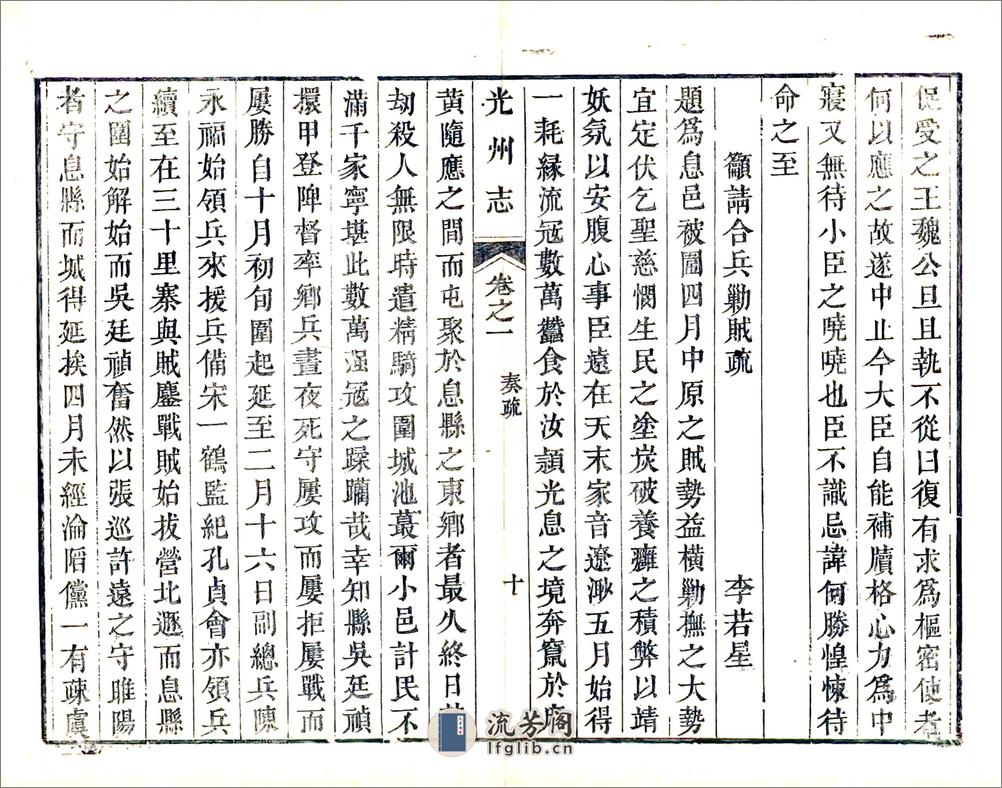 促受之王魏公旦且執不從日復有求爲樞密使者
何以應之故遂中止今大臣自能補牘格心力爲中
寢又無待小臣之曉曉也臣不識忌諱何勝惶悚待
命之至
籲請合兵勦賊疏 李若星
題爲息邑被圍四月中原之賊勢益橫勦撫之大勢
宜定伏乞聖慈憫生民之塗炭破養癰之積弊以靖
妖氛以安腹心事臣遠在天末家音遼渺五月始得
一耗緣流寇數萬蠶食於汝頴光息之境奔竄於
光州志 卷之一 奏疏 十
黃隨應之間而屯聚於息縣之東鄉者最久終日
刼殺人無限時遣精騎攻圍城池蕞爾小邑計民不
滿千家寧堪此數萬强寇之蹂躪哉幸知縣吳廷禎
擐甲登陴督率鄉兵晝夜死守屢攻而屢拒屢戰而
屢勝自十月初旬圍起延至二月十六日副總兵陳
永福始領兵來援兵備宋一鶴監紀孔貞會亦領兵
續至在三十里寨與賊鏖戰賊始拔營北遯而息縣
之圍始解始而吳廷禎奮然以張巡許遠之守睢陽
者守息縣而城得延挨四月未經淪陷儻一有疎虞
流芳阁
lfglib.cn